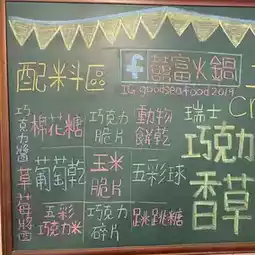 配料區
f 囍富火鍋
IG goodseafood2019
巧克力醬
棉花糖
巧克力脆片
動物餅乾
瑞士
Cr
草莓醬
葡萄乾
玉米脆片
五彩球
巧克力
五彩巧克力米
巧克力碎片
跳跳糖
香草